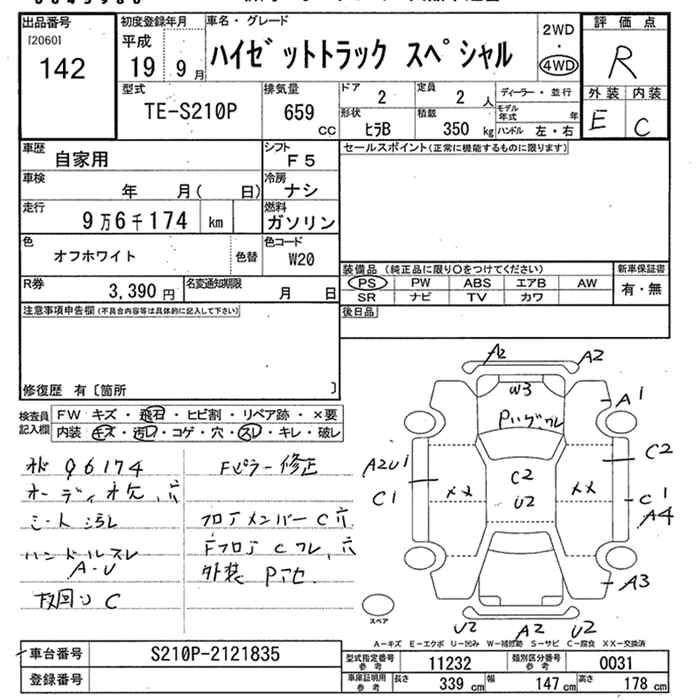 出品番号
[2060]
142
初度登録年月
平成
19 9月
車名・グレード
ハイゼットトラック スペシャル
2WD
4WD
評価点
R
外装 内装
E C
型式
TE-S210P
排気量
659 cc
ドア
2
定員
2 人
形状
ヒラB
積載
350 kg
ディーラー・並行
モデル年式 年
ハンドル 左・右
車歴
自家用
シフト
F5
セールスポイント(正常に機能するものに限ります)
車検
年 月( 日)
冷房
ナシ
走行
9万6千174 km
燃料
ガソリン
色
オフホワイト
色替
色コード
W20
装備品(純正品に限り○をつけてください)
新車保証書
PS PW ABS エアB AW
SR ナビ TV カワ
有・無
R券
3,390円
名変通知期限
月 日
後日品
注意事項申告欄(不具合内容等は具体的に記入して下さい)
修復歴 有〔箇所 〕
検査員記入欄
FW キズ・飛石・ヒビ割・リペア跡・×要
内装・キズ・汚レ・コゲ・穴・スレ・キレ・破レ
96174
Fピラー修正
オーディオ欠,穴
フロアメンバーC穴
ハンドルスレ
Fフロア Cフレ,穴
A-U
外装 Pアセ
下回り C
A2 A2
W3
A1
A2U1
C1
C2
C2
U2
XX XX
C1
A4
A3
U2 A2 U2
スペア
A-キズ E-エクボ U-凹み W-補修跡 S-サビ C-腐食 XX-交換済
車台番号
S210P-2121835
登録番号
型式指定番号 参考
11232
類別区分番号 参考
0031
車庫証明用 参考
長さ 339 cm
幅 147 cm
高さ 178 cm